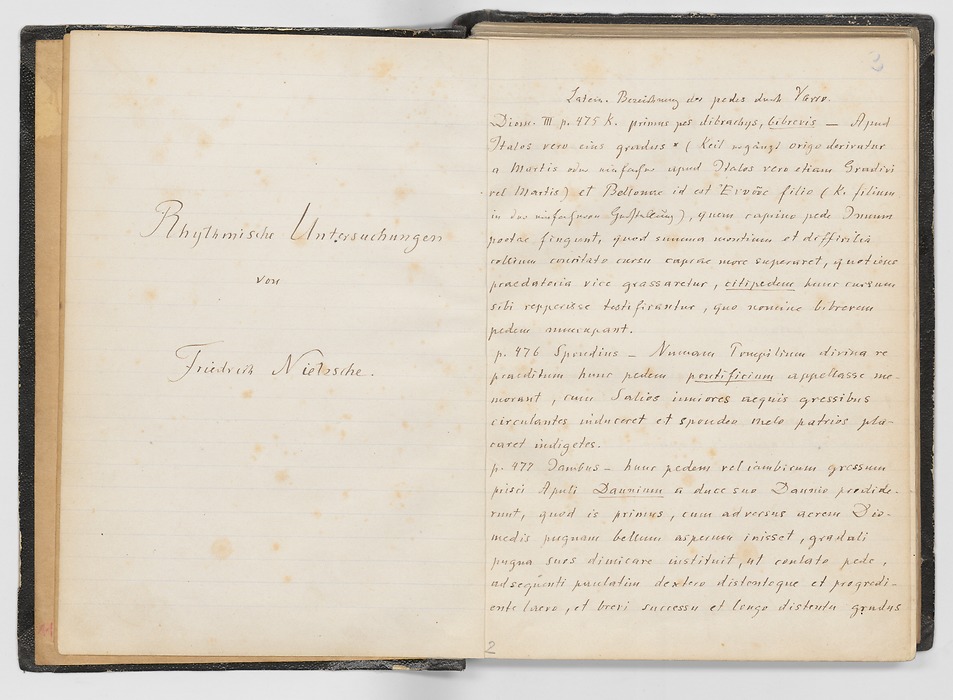 Rhythmische Untersuchungen
von
Friedrich Nietzsche.
2
3
Latein. Bezeichnung der pedes durch Varro.
Diom. III p. 475 K. primus pes dibrachys, bibrevis — Apud
Italos vero eius gradus * (Keil ergänzt origo derivatur
a Martis apud Italos vero etiam Gradivi
vel Martis) et Bellonae id est Ἐνυοῦς filio (K. filium
in der), quem caprino pede Inuum
poetae fingunt, quod summa montium et difficilia
collium concitato cursu caprae more superaret, quotiens
praedatoria vice grassaretur, citipedem hunc cursum
sibi repperisse testificantur, quo nomine bibrevem
pedem nuncupant.
p. 476 Spondius — Numam Pompilium divina re
praeditum hunc pedem pontificium appellasse me-
morant, cum Salios iuniores aequis gressibus
circulantes induceret et spondeo melo patrios pla-
caret indigetes.
p. 477 Iambus — hunc pedem vel iambicum gressum
prisci Apuli Daunium a duce suo Daunio prodide-
runt, quod is primus, cum adversus aerem Dio-
medis pugnam bellum asperum inisset, gradali
pugna suos dimicare instituit, ut conlato pede,
adsequenti paulatim dextero distentoque et progredi-
ente laevo, et brevi successu et longo distentu gradus